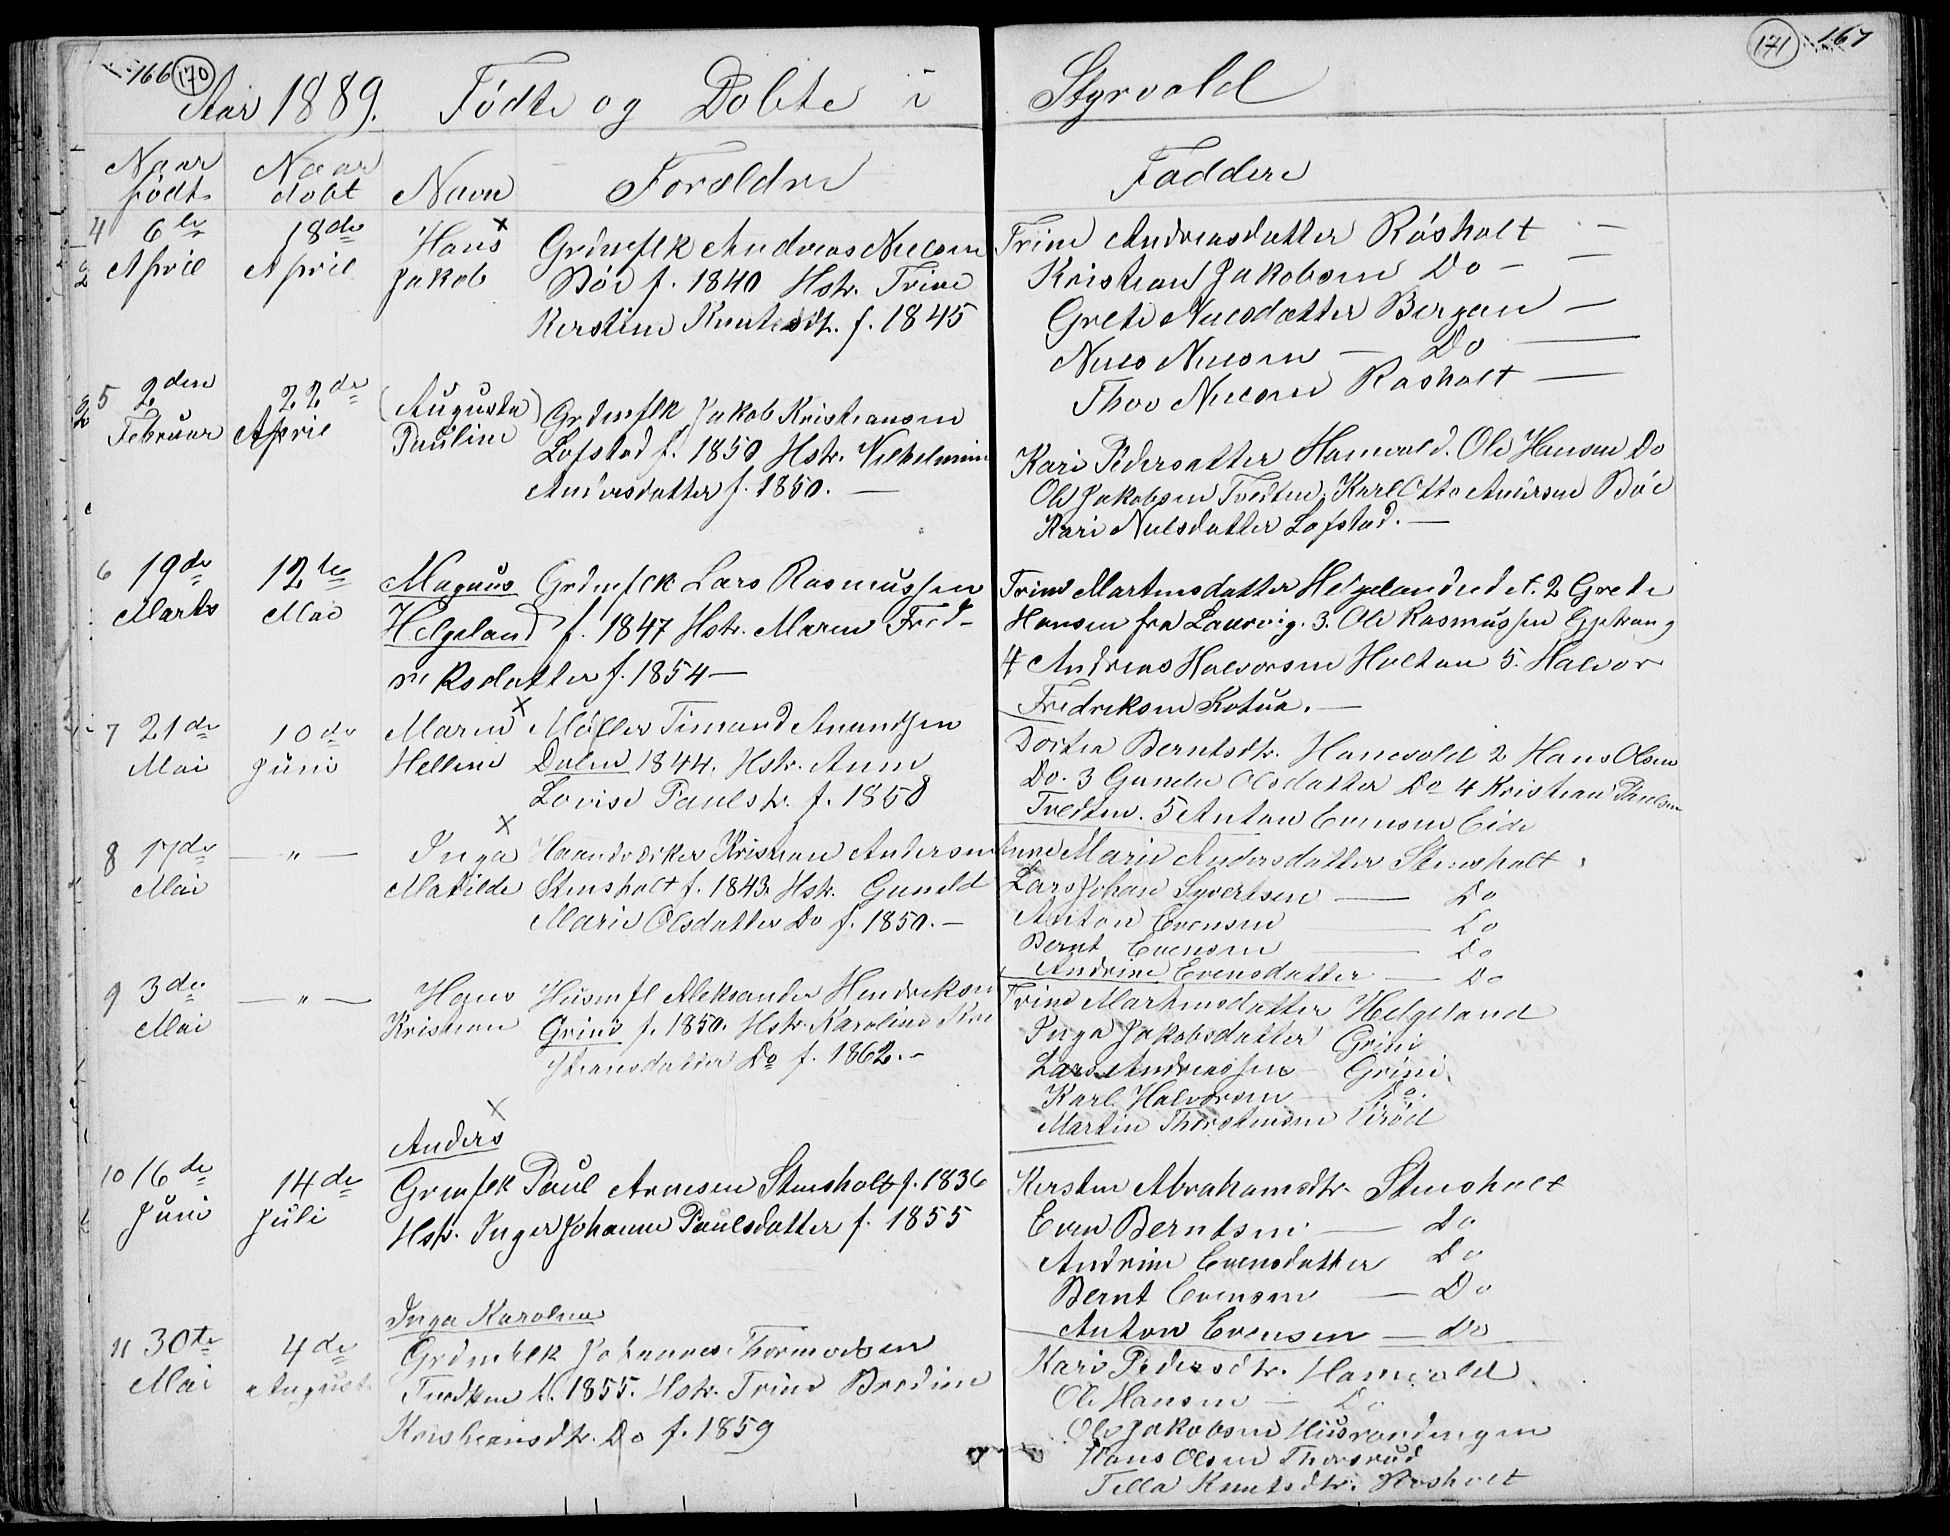 166 170
Aar 1889. Fødte og Døbte i
Naar født Naar døbt Navn Forældre
4 6te April 18de April Hans Jakob
Grdmflk Andreas Nielsen
Bøe f. 1840 Hstr. Trine
Kerstine Knutsdtr. f. 1845
5 2den Februar 22de April (Augusta) Pauline
Grdmflk Jakob Kristiansen
Lofstad f. 1850 Hstr. Vilhelmine
Andersdatter f. 1850. —
6 19de Marts 12te Mai Magnus Helgeland
Grdmflk Lars Rasmussen
f. 1847 Hstr. Maren Fred-
riksdatter f. 1854 —
7 21de Mai 10de Juni Maren Helline
Møller Timand Amundsen
Dalen 1844. Hstr. Anne
Lovise Paulstr. f. 1858
8 17de Mai — " — Inga Matilde
Haandværker Kristian Andersen
Stensholt f. 1843. Hstr. Gunild
Marie Olsdatter Do f. 1850. —
9 3de Mai — " — Hans Kristian
Husmfl Aleksander Hendriksen
Grini f. 1850. Hstr. Karoline Kri
stiansdatter Do f. 1862. —
Anders
10 16de Juni 14de Juli
Grmflk Paul Arnesen Stensholt f. 1836
Hstr. Inger Johanne Paulsdatter f. 1855
Inga Karoline
11 30te Mai 4de August
Grdmflk Johannes Thormodsen
Tvedten f. 1855. Hstr. Trine Bredine
Kristiansdtr. Do f. 1859
171 167
Styrvold
Faddere
Trine Andreasdatter Røsholt —
Kristian Jakobsen Do — —
Grete Nielsdatter Bergan —
Niels Nielsen — Do —
Thor Nielsen Røsholt —
Kari Pedersdatter Hanevold. Ole Hansen Do
Ole Jakobsen Tvedten, Karl Otto Andersen Bøe
Kari Nielsdatter Lofstad. —
Trine Martinsdatter Helgeland 2 Grete
Hansen fra Laurvig. 3. Ole Rasmussen
4 Andreas Halvorsen Holtan 5. Halvor
Fredriksen Kotua. —
Dortea Berntsdtr. Hanevold 2 Hans Olsen
Do. 3 Gunda Olsdatter Do 4 Kristian Paulsen
Tvedten. 5 Anton Evensen Eide
Marie Andersdatter Stensholt
Lars Johan Syvertsen — Do
Anton Evensen — Do
Bernt Evensen — Do
Andrine Evensdatter — Do
Trine Martinsdatter Helgeland
Inga Jakobsdatter Grini
Lars Andreassen Grini
Karl Halvorsen Do.
Martin Thorstensen
Kersten Abrahamsdtr. Stensholt
Even Berntsen — Do
Andrine Evensdatter Do
Bernt Evensen — Do
Anton Evensen — Do
Kari Pedersdtr. Hanevold
Ole Hansen — Do
Ole Jakobsen
Hans Olsen Thorsrud
Tella Knutsdtr. Røsholt